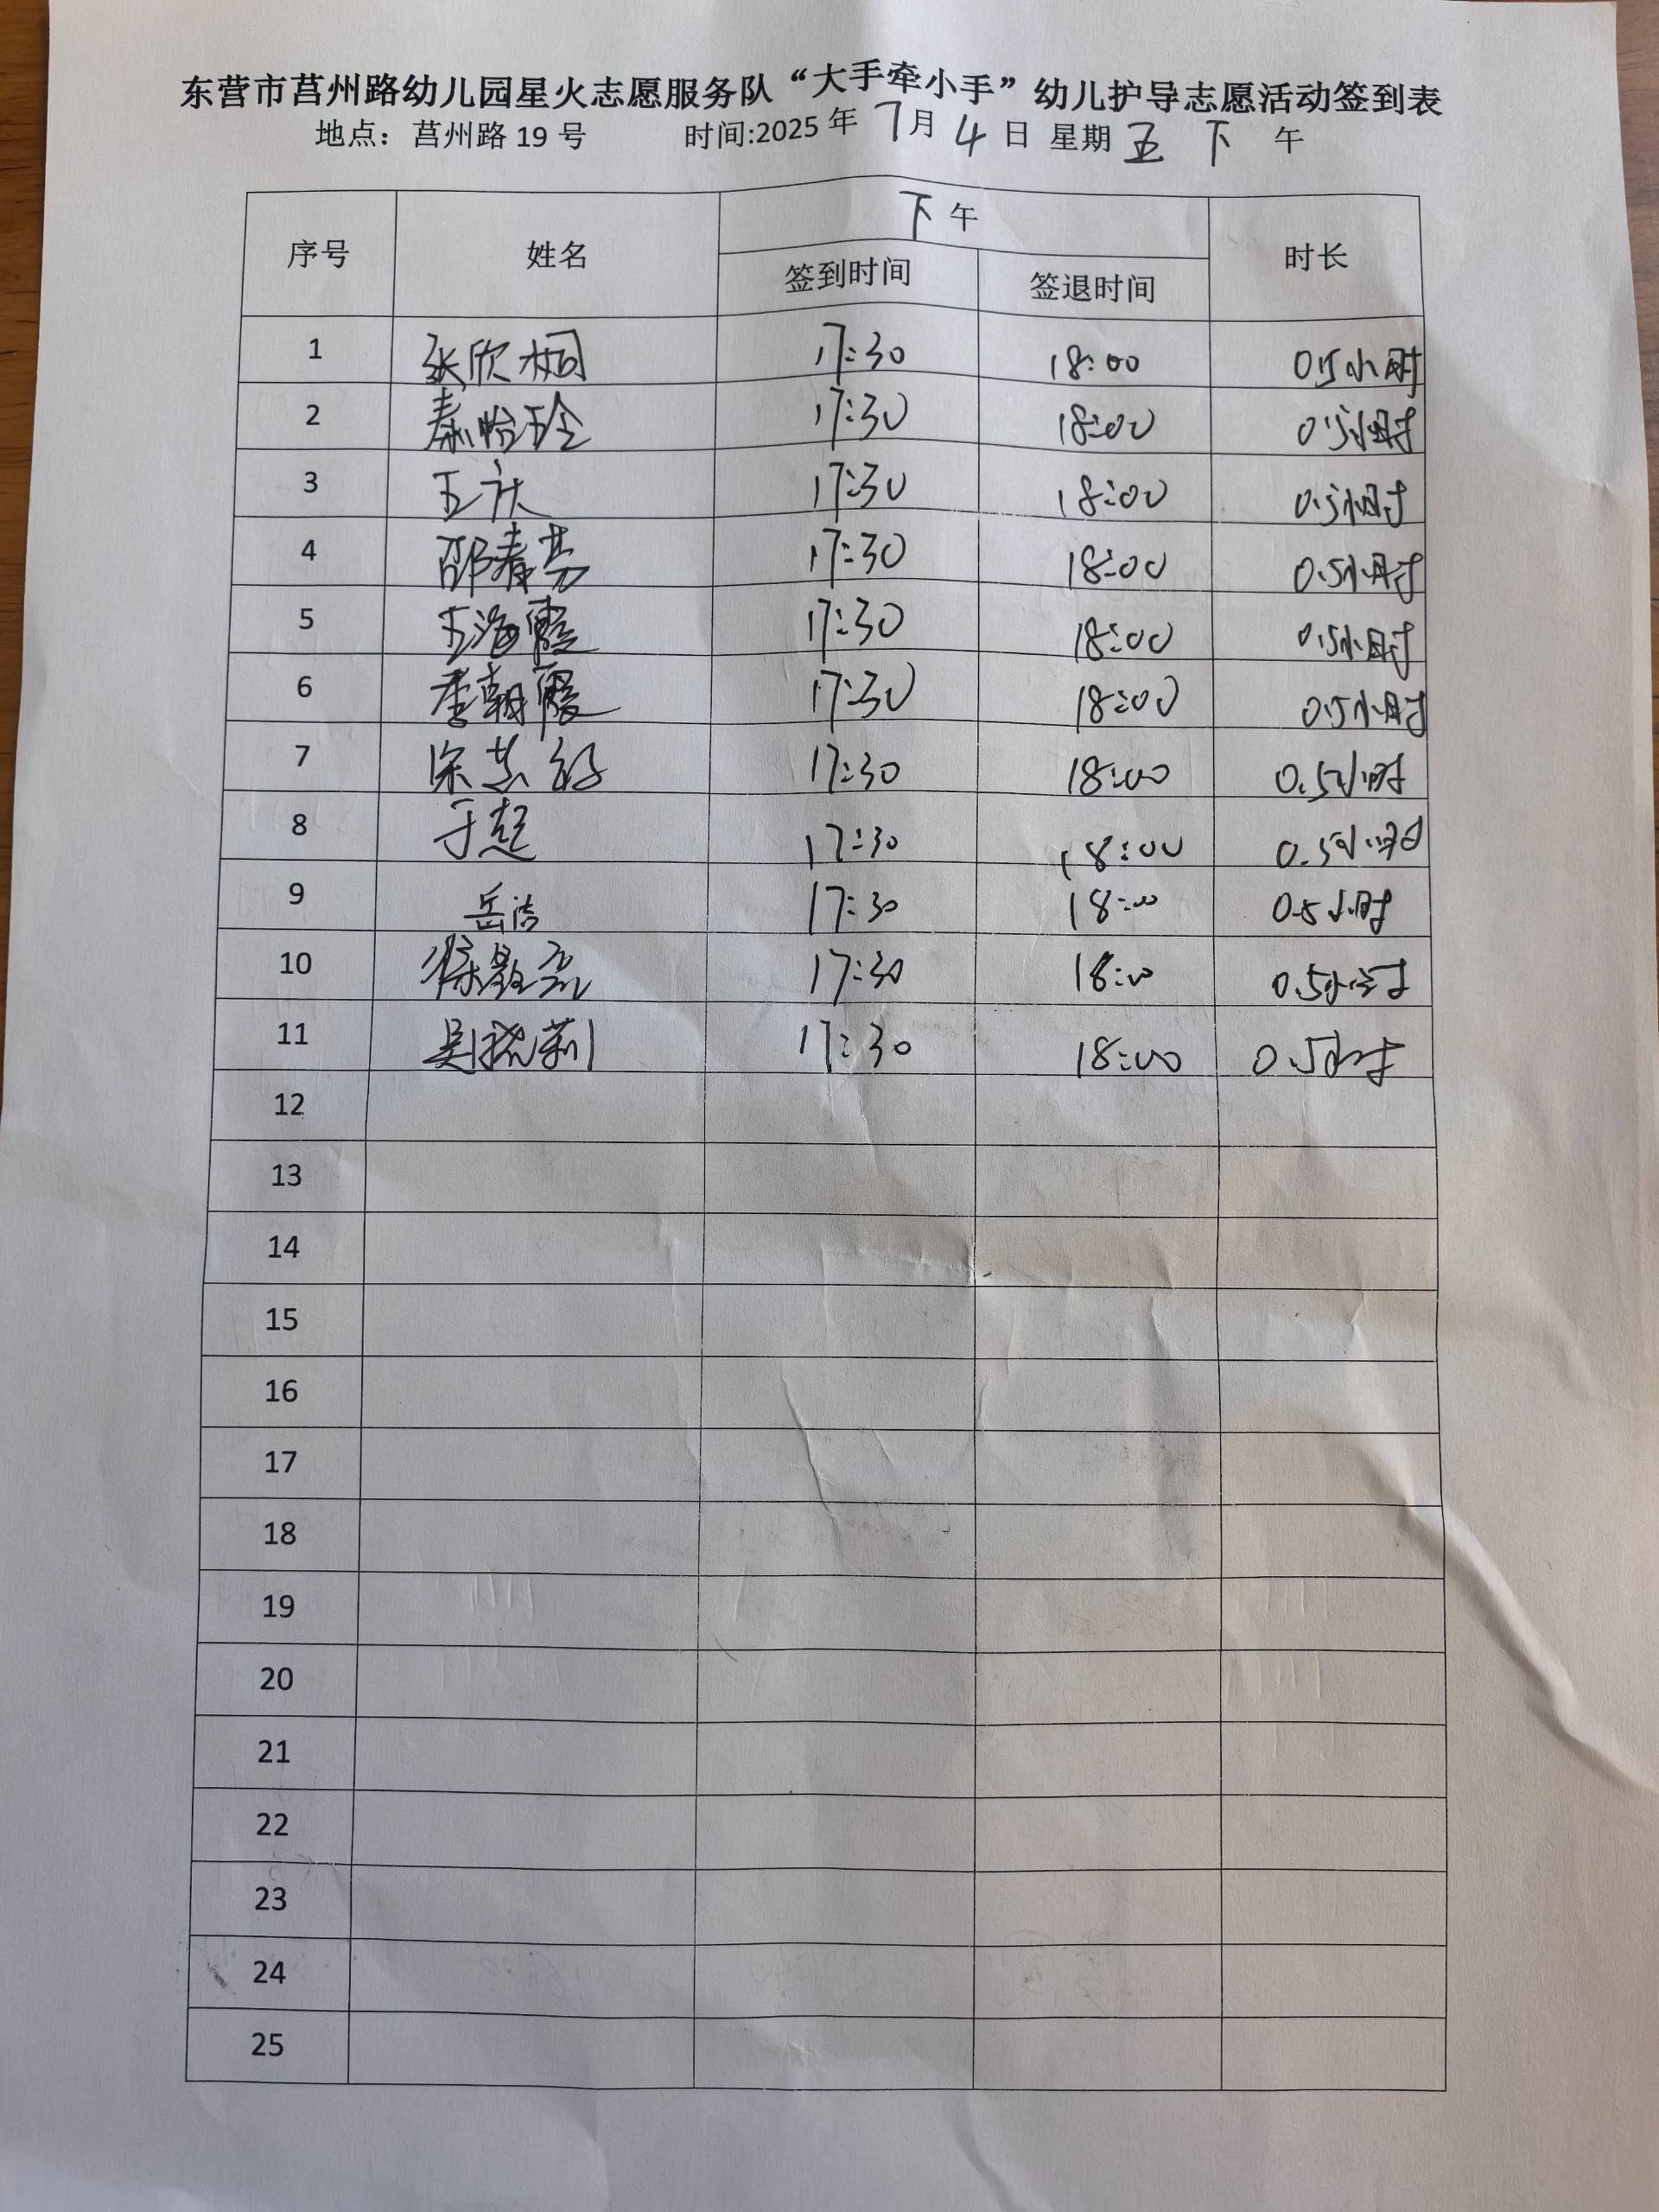 东营市莒州路幼儿园星火志愿服务队“大手牵小手”幼儿护导志愿活动签到表
地点：莒州路 19 号 时间:2025 年 7 月 4 日 星期 五 下 午
序号 姓名 下 午 时长
签到时间 签退时间
1 张欣桐 17:30 18:00 0.5小时
2 秦怡玲 17:30 18:00 0.5小时
3 王庆 17:30 18:00 0.5小时
4 邵春芳 17:30 18:00 0.5小时
5 王海霞 17:30 18:00 0.5小时
6 李朝霞 17:30 18:00 0.5小时
7 宋慧 17:30 18:00 0.5小时
8 于超 17:30 18:00 0.5小时
9 岳洁 17:30 18:00 0.5小时
10 徐 17:30 18:00 0.5小时
11 吴晓莉 17:30 18:00 0.5小时
12
13
14
15
16
17
18
19
20
21
22
23
24
25